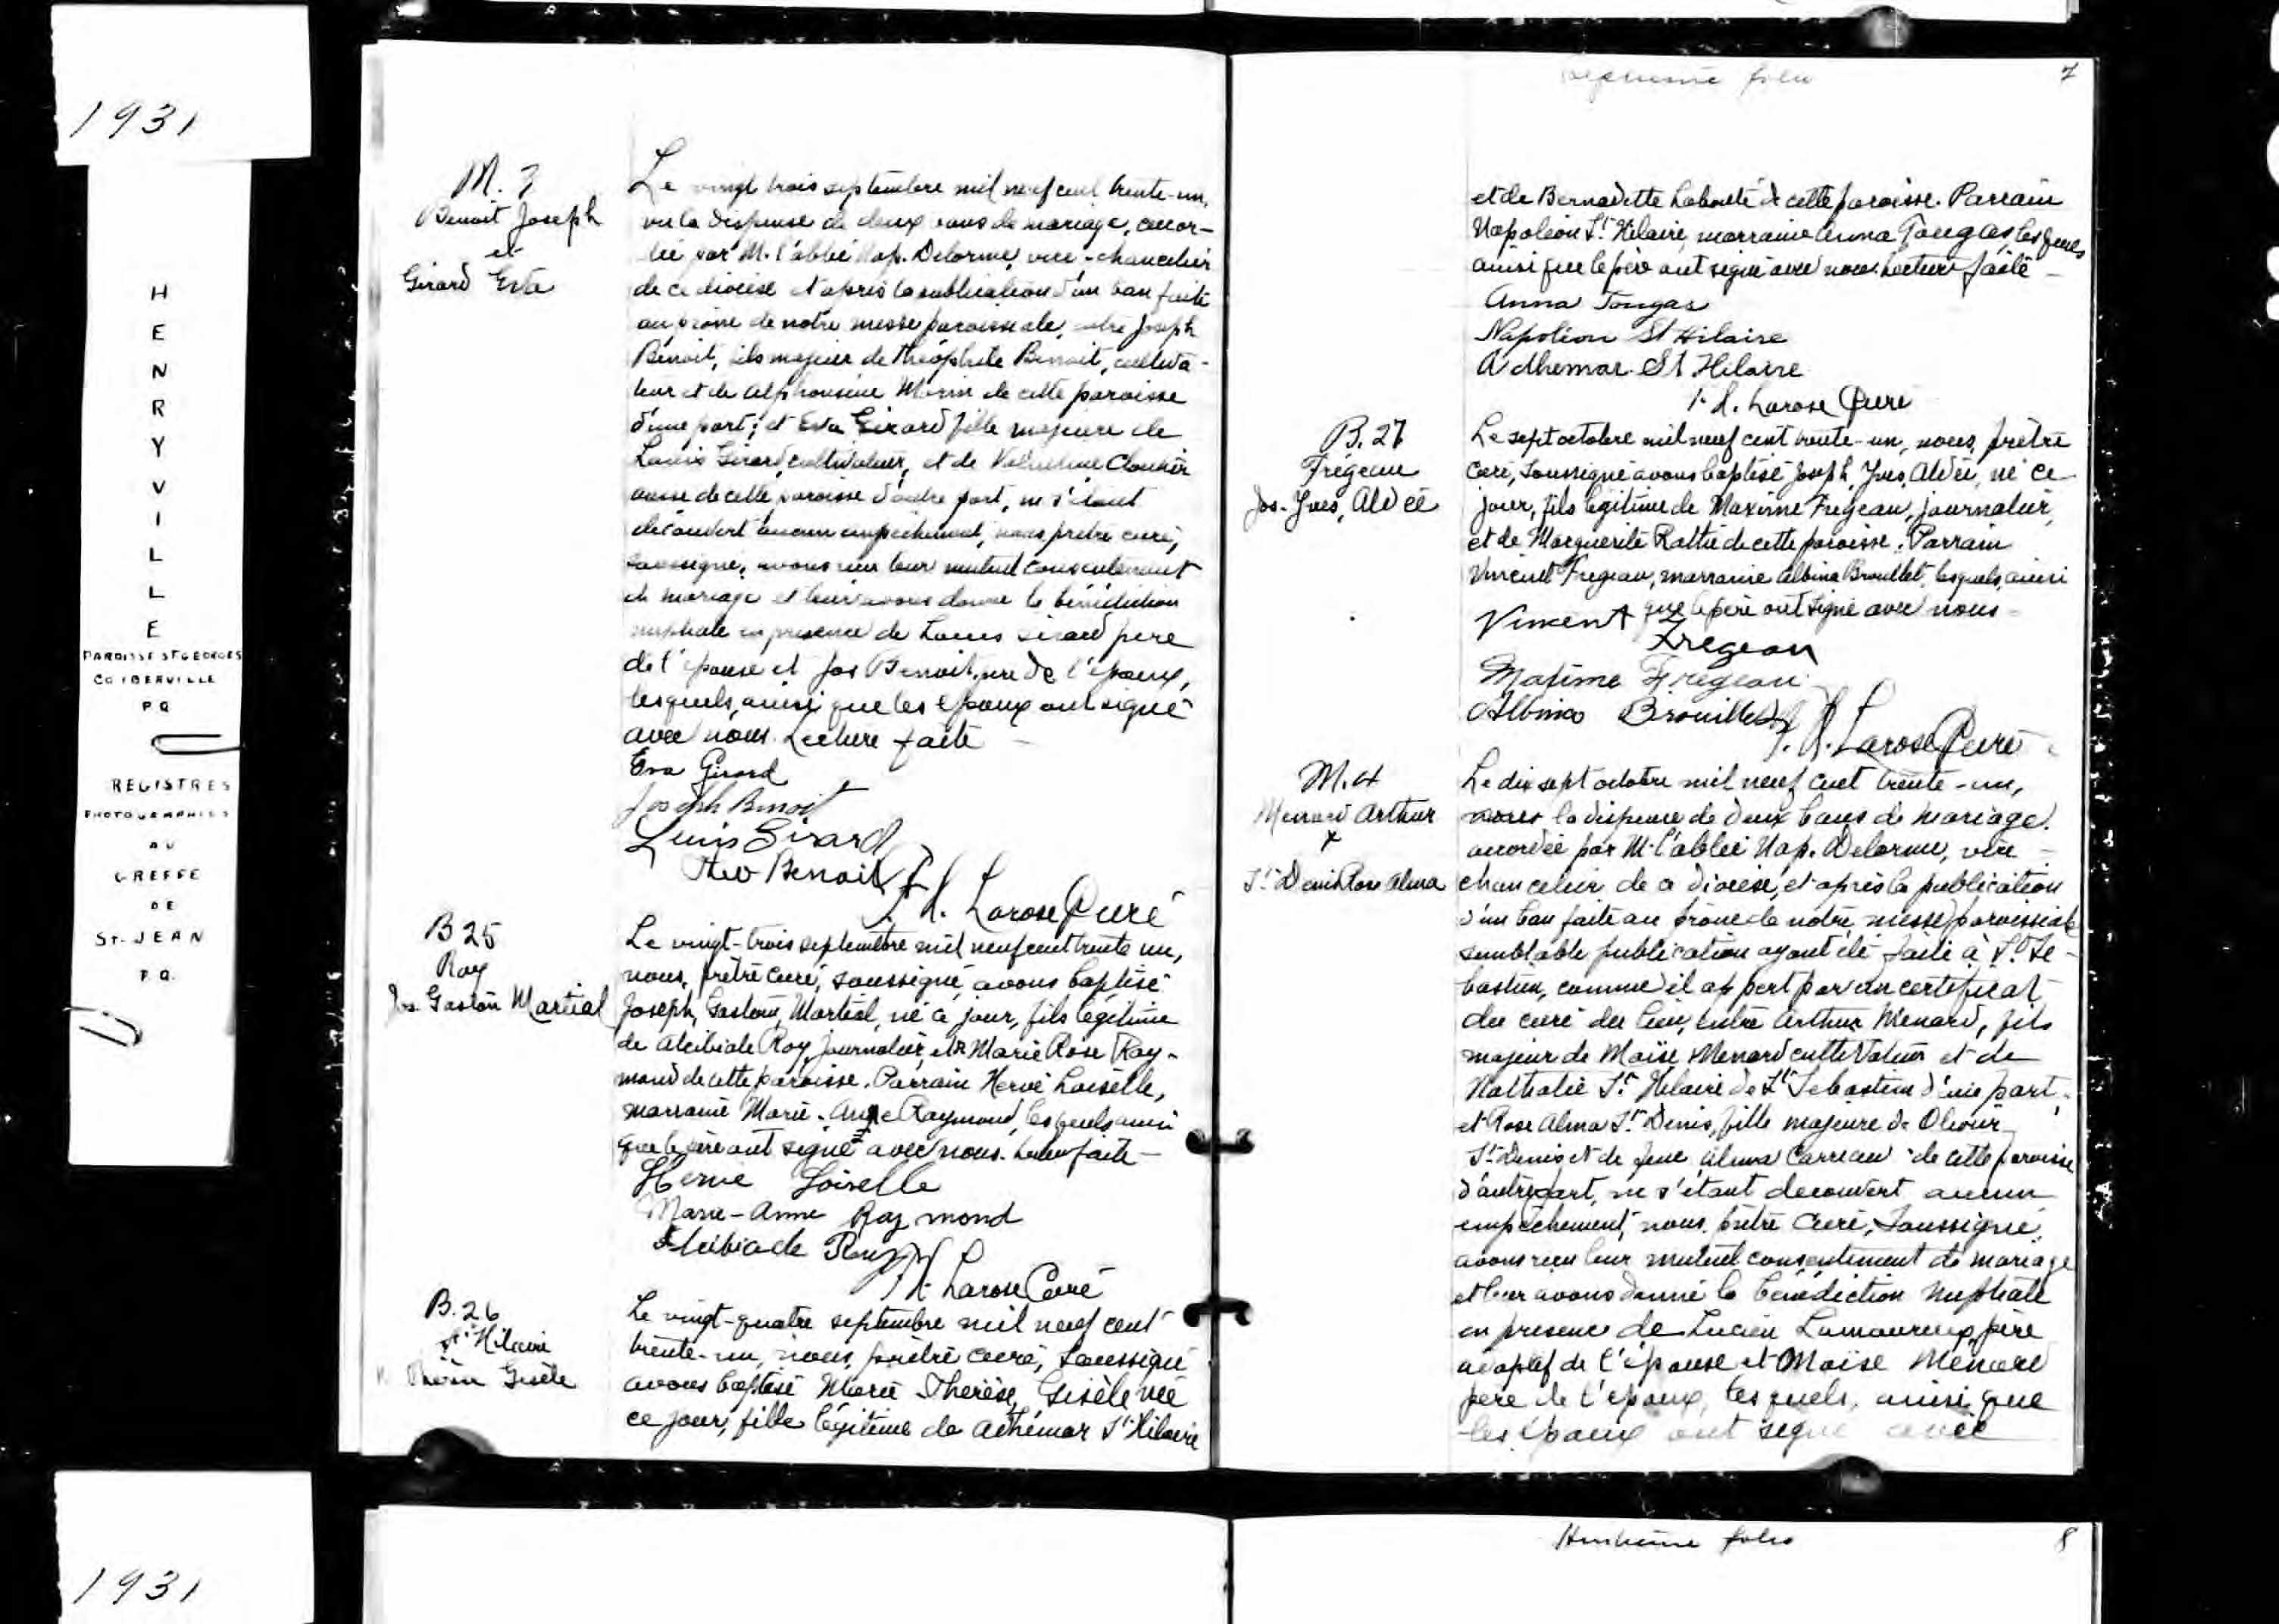 1931
HENRYVILLE
PAROISSE ST GEORGES
CO IBERVILLE
P Q
REGISTRES
PHOTOGRAPHIES
AU
GREFFE
DE
ST-JEAN
P.Q.
1931
M. 3
Benoit Joseph
et
Girard Eva
Le vingt trois septembre mil neuf cent trente-un,
vu la dispense de deux bans de mariage, accor-
dée par M. l'abbé Nap. Delorme, vice-chancelier
de ce diocèse et après la publication d'un ban faite
au prône de notre messe paroissiale, entre Joseph
Benoit, fils majeur de Théophile Benoit, cultiva-
teur et de Alphonsine Morin de cette paroisse
d'une part; et Eva Girard fille majeure de
Louis Girard, cultivateur, et de Valentine Cloutier
aussi de cette paroisse d'autre part, ne s'étant
découvert aucun empêchement, nous prêtre curé,
soussigné, avons reçu leur mutuel consentement
de mariage et leur avons donné la bénédiction
nuptiale en présence de Louis Girard père
de l'épouse et Jos Benoit, père de l'époux,
lesquels, ainsi que les époux ont signé
avec nous. Lecture faite –
Eva Girard
Joseph Benoit
Louis Girard
Theo Benoit
Larose Curé
B 25
Roy
Jos. Gaston Martial
Le vingt-trois septembre mil neuf cent trente un,
nous, prêtre curé, soussigné, avons baptisé
Joseph, Gaston, Martial, né ce jour, fils légitime
de Alcibiade Roy, journalier, et de Marie Rose Ray-
mond de cette paroisse. Parrain Hervé Loiselle,
marraine Marie-Anne Raymond, lesquels ainsi
que le père ont signé avec nous. Lecture faite –
Hervé Loiselle
Marie-Anne Raymond
Alcibiade Roy
Larose Curé
B. 26
St-Hilaire
M. Thérèse Gisèle
Le vingt-quatre septembre mil neuf cent
trente-un, nous, prêtre curé, soussigné
avons baptisé Marie Thérèse, Gisèle née
ce jour, fille légitime de Adhémar St-Hilaire
Septième folio 7
et de Bernadette Labonté de cette paroisse. Parrain
Napoléon St. Hilaire, marraine Anna Tougas, lesquels
ainsi que le père ont signé avec nous. Lecture faite –
Anna Tougas
Napoléon St Hilaire
Adhemar St Hilaire
Larose Curé
B. 27
Frégeau
Jos. Yves, Aldéé
Le sept octobre mil neuf cent trente-un, nous, prêtre
curé, soussigné avons baptisé Joseph, Yves, Aldéé, né ce
jour, fils légitime de Maxime Frégeau, journalier,
et de Marguerite Rattié de cette paroisse. Parrain
Vincent Fregeau, marraine Albina Brouillet, lesquels, ainsi
que le père ont signé avec nous –
Vincent Fregeau
Maxime Fregeau
Albina Brouillet
Larose Curé
M. 4
Menard Arthur
&
St-Denis Rose Alma
Le dix sept octobre mil neuf cent trente-un,
la dispense de deux bans de mariage.
accordée par M. l'abbé Nap. Delorme, vice-
chancelier de ce diocèse, et après la publication
d'un ban faite au prône de notre messe paroissiale
semblable publication ayant été faite à St. Sé-
bastien, comme il appert par un certificat
du curé du lieu, entre Arthur Ménard, fils
majeur de Moïse Menard cultivateur et de
Nathalie St. Hilaire de St. Sébastien d'une part,
et Rose Alma St. Denis, fille majeure de Olivier
St-Denis et de feue Alma Carreau de cette paroisse
d'autre part, ne s'étant découvert aucun
empêchement, nous, prêtre curé, soussigné,
avons reçu leur mutuel consentement de mariage
et leur avons donné la bénédiction nuptiale
en presence de Lucien Lamoureux, père
adoptif de l'épouse et Moïse Ménard
père de l'époux, lesquels, ainsi que
les époux ont signé avec
Huitième folio 8